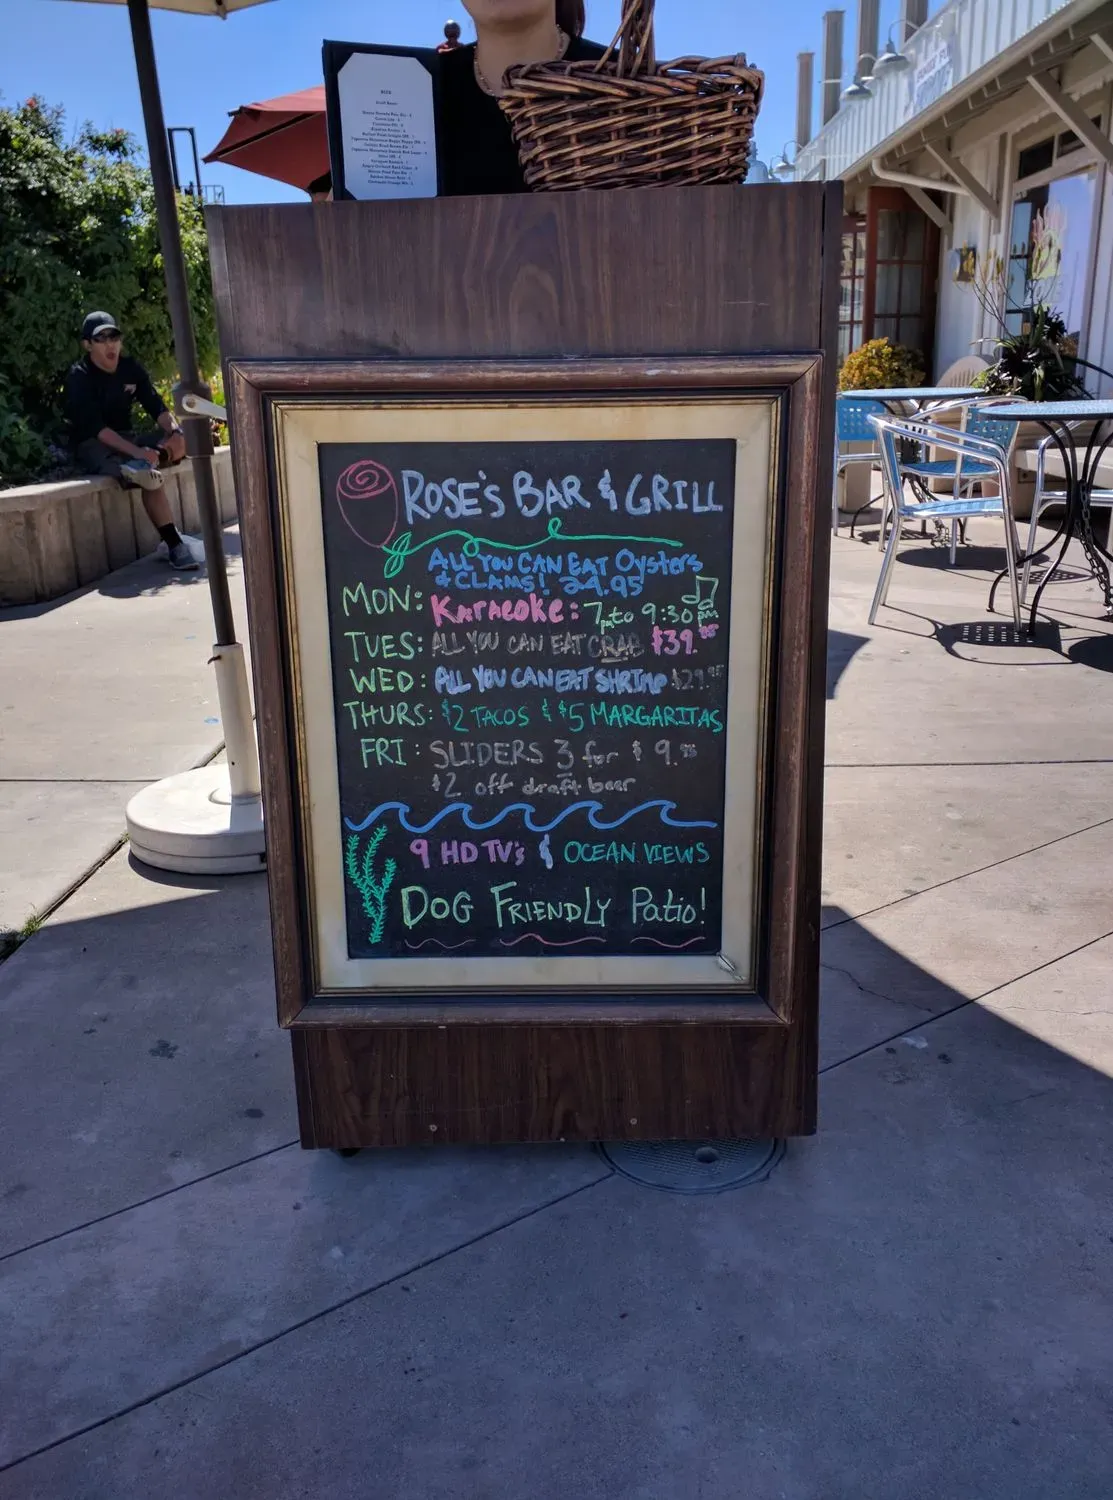 BEER
Draft Beers
ROSE'S BAR & GRILL
ALL YOU CAN EAT Oysters
& CLAMS! 24.95
MON: KARAOKE: 7pm to 9:30 pm
TUES: ALL YOU CAN EAT CRAB $39.95
WED: ALL YOU CAN EAT SHRIMP $29.95
THURS: $2 TACOS & $5 MARGARITAS
FRI: SLIDERS 3 for $9.95
$2 off draft beer
9 HD TV's & OCEAN VIEWS
DOG FRIENDLY Patio!